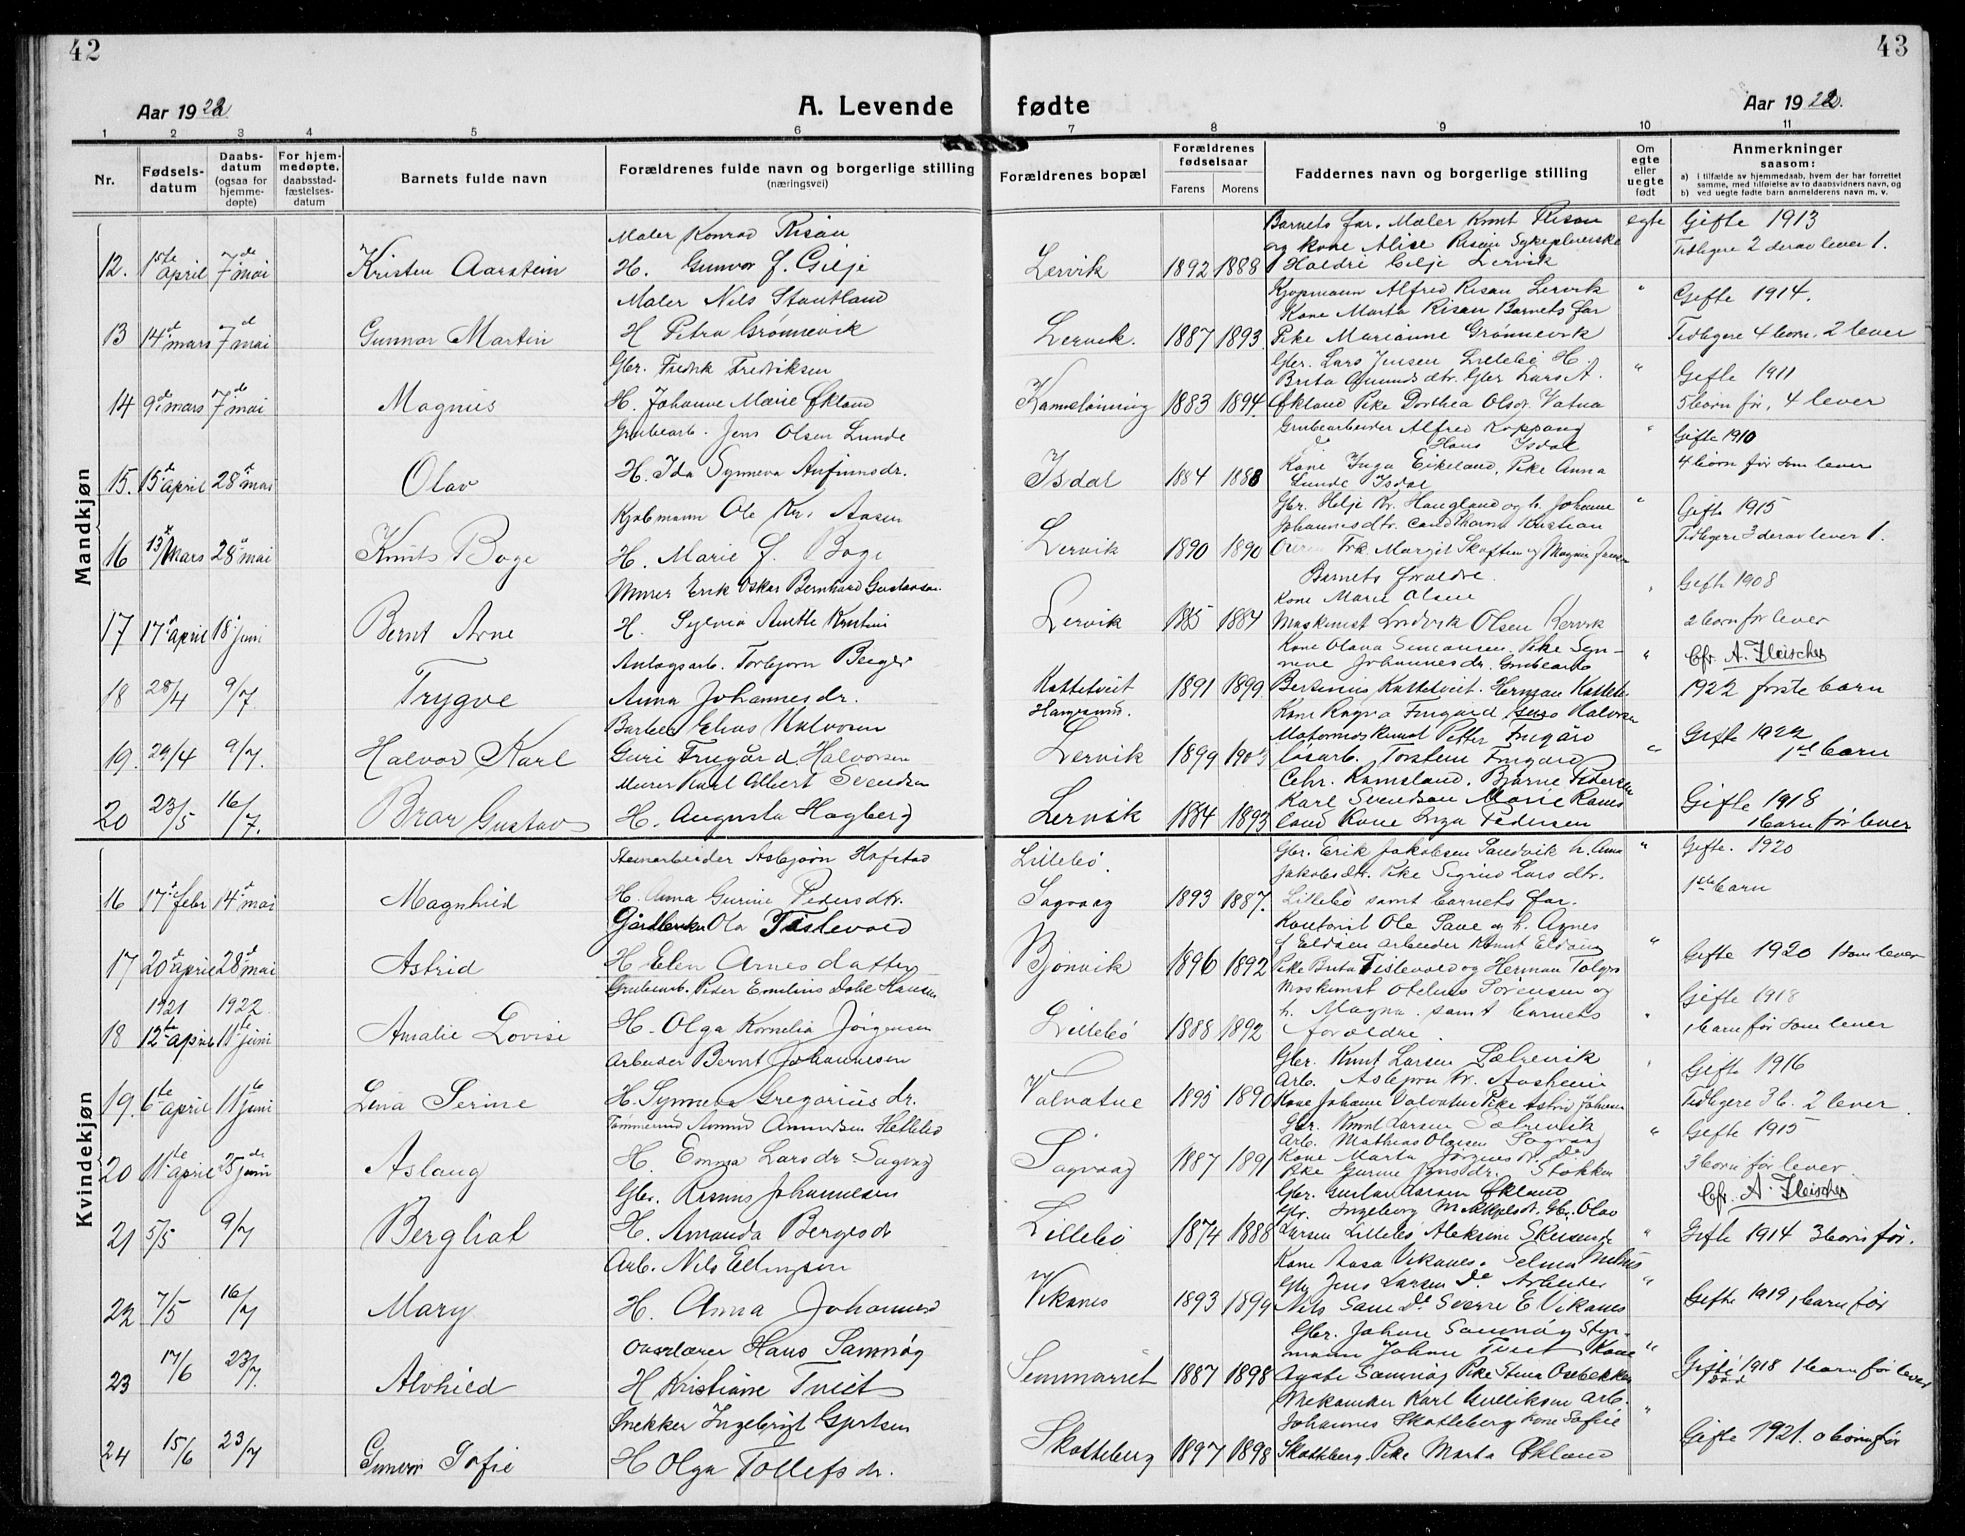 42
43
Aar 1922
A. Levende fødte
Aar 1922.
1 2 3 4 5 6 7 8 9 10 11
Nr.
Fødsels-datum
Daabs-datum (ogsaa for hjemme-døpte)
For hjem-medøpte, daabsstad-fæstelses-datum
Barnets fulde navn
Forældrenes fulde navn og borgerlige stilling (næringsvei)
Forældrenes bopæl
Forældrenes fødselsaar
Farens Morens
Faddernes navn og borgerlige stilling
Om egte eller uegte født
Anmerkninger saasom:
a) i tilfælde av hjemmedaab, hvem der har forrettet samme, med tilføielse av to daabsvidners navn, og
b) ved uegte fødte barn anmelderens navn m. v.
Mandkjøn
Maler Konrad Risan
Barnets far, Maler Knut Risan egte Gifte 1913
og kone Alise Risan Sykepleierske Tidligere 2 derav lever 1.
12. 15te april 7de mai Kristen Aarstein H. Gunvor f. Gilje Lervik 1892 1888 Haldri Gilje Lervik
Maler Nils Stautland Kjøpmann Alfred Risan Lervik " Gifte 1914.
Kone Marta Risan Barnets far
13 14d mars 7de mai Gunnar Martin H Petra Grønnevik Lervik. 1887 1893. Pike Marianne Grønnevik Tidligere 4 børn. 2 lever
Gbr. Fredrik Fredriksen Gbr. Lars Jensen Lillebø H. " Gifte 1911
Brita Amundsdtr. Gbr Lars A.
14 9de mars 7de mai Magnus H. Johanne Marie Økland 1883 1894 Økland Pike Dorthea Olsdr. Vatna 5 børn før, 4 lever
Grubearb. Jens Olsen Lunde Grubearbeider Alfred Koppang " Gifte 1910
Hans Isdal
15. 15d april 28d mai Olav H. Ida Synneva Anfinnsdr. Isdal 1884 1888 Kone Inga Eikeland, Pike Anna 4 børn før som lever
Lunde Isdal
Kjøbmann Ole Kr. Aasen Gbr. Helje Kr. Haugland og h. Johanne " Gifte 1915
Johannesdtr. cand Kristian
16 13/ Mars 28d mai Knut Boge H. Marie f. Boge Lervik 1890 1890 Frk. Margit Skoften og Magnus Tidligere 3 derav lever 1.
Murer Erik Oskar Bernhard Gustavson Barnets foreldre. " Gifte 1908
Kone Marie Olsen
17 17d april 18d juni Bernt Arne H. Sylvia Anette Kristine Lervik 1885 1884 Maskinist Ludvik Olsen Lervik 2 børn før lever
Kone Olava Simonsen. Pike Syn- Cfr. A. Fleischer
Anlagsarb. Torbjørn Berger neve Johannesdr. Grubearb "
18 28/4 9/7. Trygve Anna Johannesdr. Kattetveit 1891 1899 Bertinius Kattetveit. Herman Kattet. 1922 første barn
Hamresund. Kone Ragna Frugård Halvorsen
Barber Elias Halvorsen Motormaskinist Petter Frugård Gifte 1922
19. 29/4 9/7. Halvor Karl Guri Frugård Halvorsen Lervik 1899 løsarb. Torstein Frugård " 1ste barn
Murer Karl Albert Svendsen Bjarne Pedersen
20 23/5 16/7. Bror Gustav H. Augusta Hagberg Lervik 1884 1893 Karl Svendsen Marie Rams- Gifte 1918
land Kone Inga Pedersen 1 barn før lever
Kvindekjøn
Stenarbeider Asbjørn Hafstad Lillebø. Gbr. Erik Jakobsen Sandvik h. Ana " Gifte. 1920
Jakobsdtr. Pike Sigrid Larsdtr.
16 17d febr 14d mai Magnhild H. Anna Gurine Pedersdtr. Sagvaag 1893 1887. Lillebø samt barnets far. 1ste barn
Gårdbruker Ola Tislevold Kontorist Ole Save og h. Agnes
17 20d april 28d mai Astrid H Elen Arnesdatter Bjonvik 1896 1892 Pike Brita Tislevold og Herman Tolgjo " Gifte 1920 1 som lever
Grubearb. Peder Emilius Dahl Hansen Maskinist Otelius Sørensen og Gifte 1918
1921 1922 h. Magna samt barnets "
18 12te april 11te juni Amalie Lovise H. Olga Kornelia Jørgensen Lillebø 1888 1892 forældre 1 barn før som lever
Arbeider Bernt Johannesen Gbr. Knut Larsen Sælvevik " Gifte 1916
Arb. Asbjørn Tr. Aasheim
19. 6te april 11te juni Lena Serine H. Synneva Gregoriusdr. Valvatne 1895 1890 Kone Johanne Valvatne Pike Astrid Johansen Tidligere 3 b. 2 lever.
Tømmermand Amund Amundsen Hetlebø Gbr. Knut Larsen Sælvevik " Gifte 1915
Arb. Mathias Olausen Sagvaag
20 11te april 25de juni Aslaug H. Emma Larsdr Sagvåg Sagvaag 1887 1891 Kone Marta Jørginesdr. Do 3 børn før lever.
Pike Gurine Jensdr. Stokken Cfr. A. Fleischer
Gbr. Rasmus Johannesen Gbr. Gustav Larsen Økland
Gbr. Ingeborg Mikkelsdr. Gbr. Olav
21 5/5 9/7 Bergliot H. Amanda Bergesdr Lillebø 1874 1888 Larsen Lillebø Aleksine Skeisunde " Gifte 1914 3 børn før.
Arb. Nils Ellingsen Kone Aasa Vikanes. Selma
Gbr Jens Larsen Do Arbeider "
22 7/5 16/7 Mary H. Anna Johannesd Vikanes 1893 1899 Nils Save Do Sverre E Vikanes Gifte 1919, 1 barn før
Overlærer Hans Samnøy Gbr. Johan Samnøy Styr-
mann Johan Tveit Kone "
23 17/6 23/7. Alvhild H Kristiane Tveit 1887 1898 Agate Samnøy Pike Stina Osebakken Gifte 1918 1 barn før lever
Snekker Ingebrigt Gjertsen Mekaniker Karl Gulliksen Arb.
Johannes Skotteberg kone Sofie "
24 15/6 23/7 Gunvor Sofie H Olga Tollefsdr. Skotteberg 1897 1898 Skotteberg. Pike Marta Økland Gifte 1921. 0 børn før